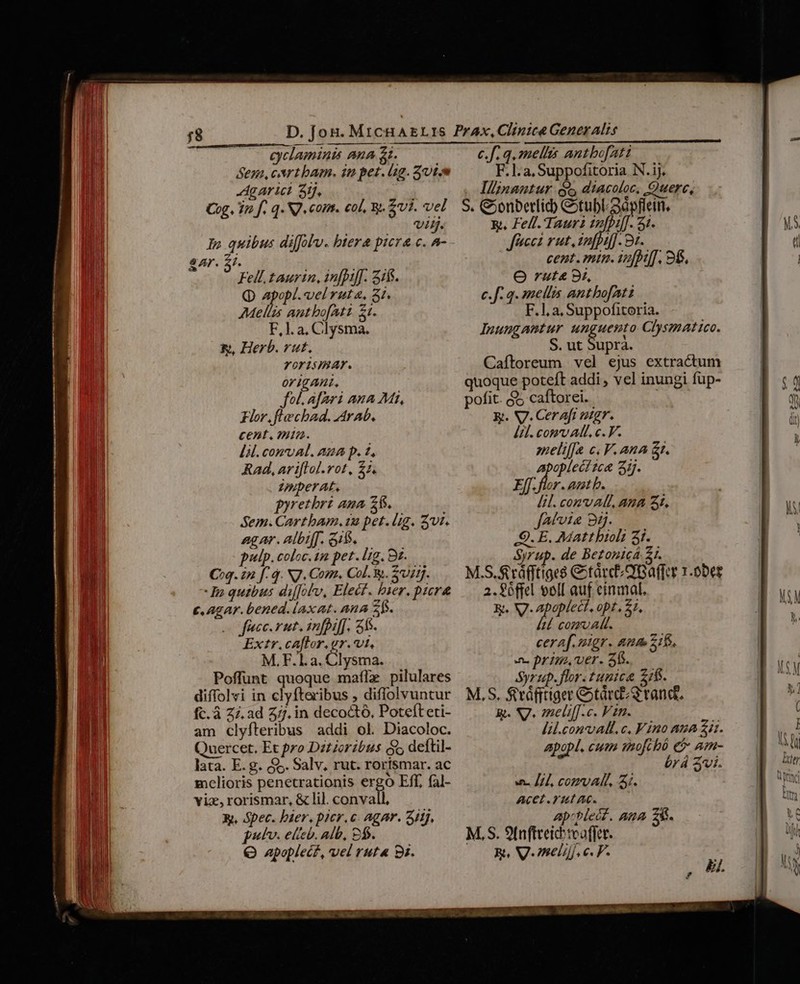 58 D. Joh. Michaelis Prax. Clinicæ Generalis
cyclaminis ana ʒi.
Sem. cartham. in pet. lig. ʒvi.
Agarici ʒij.
Coq. in f. q. ▽. com. col. ℞. ℥vi. vel
viij.
In quibus dissolv. hieræ picræ c. a-
gar. ℥i.
Fell. taurin. inspiss. ʒiß.
apopl. vel rutæ. ʒi.
Mellis anthosati ℥i.
F. l. a. Clysma.
℞. Herb. rut.
rorismar.
origani.
fol. asari ana Mi.
Flor. stæchad. Arab.
cent. min.
lil. conval. ana p. i.
Rad. aristol. rot. ℥i.
imperat.
pyrethri ana ℥ß.
Sem. Cartham. in pet. lig. ʒvi.
agar. albiss. ʒiß.
pulp. coloc. in pet. lig. ℈i.
Coq. in f. q. ▽. Com. Col. ℞. ℥viij.
In quibus dissolv. Elect. hier. picræ
c. agar. bened. laxat. ana ℥ß.
succ. rut. inspiss. ʒß.
Extr. castor. gr. vi.
M. F. l. a. Clysma.
Possunt quoque massæ pilulares
dissolvi in clysteribus, dissolvuntur
sc. à ʒi. ad ʒij. in decoctô. Potest eti-
am clysteribus addi ol. Diacoloc.
Quercet. Et pro Ditioribus destil-
lata. E. g. Salv. rut. rorismar. ac
melioris penetrationis ergò Ess. sal-
viæ, rorismar. & lil. convall.
℞. Spec. hier. picr. c. agar. ʒiij.
pulv. elleb. alb. ℈ß.
apoplect. vel rutæ ℈i.
c. s. q. mellis anthosati
F. l. a. Suppositoria N. ij.
Illinantur diacoloc. Querc.
S. Sonderlich Stuhl-Zäpflein.
℞. Fell. Tauri inspiss. ʒi.
succi rut. inspiss. ℈i.
cent. min. inspiss. ℈ß.
rutæ ℈i.
c. s. q. mellis anthosati
F. l. a. Suppositoria.
Inungantur unguento Clysmatico.
S. ut Suprà.
Castoreum vel ejus extractum
quoque potest addi, vel inungi sup-
posit. castorei.
℞. ▽. Cerasi nigr.
lil. convall. c. V.
melissæ c. V. ana ℥i.
apoplecticæ ʒij.
Ess. flor. anth.
lil. convall. ana ʒi.
salviæ ℈ij.
Q. E. Matthioli ʒi.
Syrup. de Betonica ℥i.
M. S. Kräfftiges Stärck-Wasser 1. oder
2. Löffel voll auf einmal.
℞. ▽. apoplect. opt. ℥i.
lil convall.
ceras. nigr. ana ℥iß.
prim. ver. ʒß.
Syrup. flor. tunicæ ℥iß.
M. S. Kräfftiger Stärck-Tranck.
℞. ▽. meliss. c. Vin.
lil. convall. c. Vino ana ℥ii.
apopl. cum moschô & am-
brâ ʒvi.
lil. convall. ʒi.
Acet. rutac.
apoplect. ana ℥ß.
M. S. Anstreichwasser.
℞. ▽. meliss. c. V.
lil.